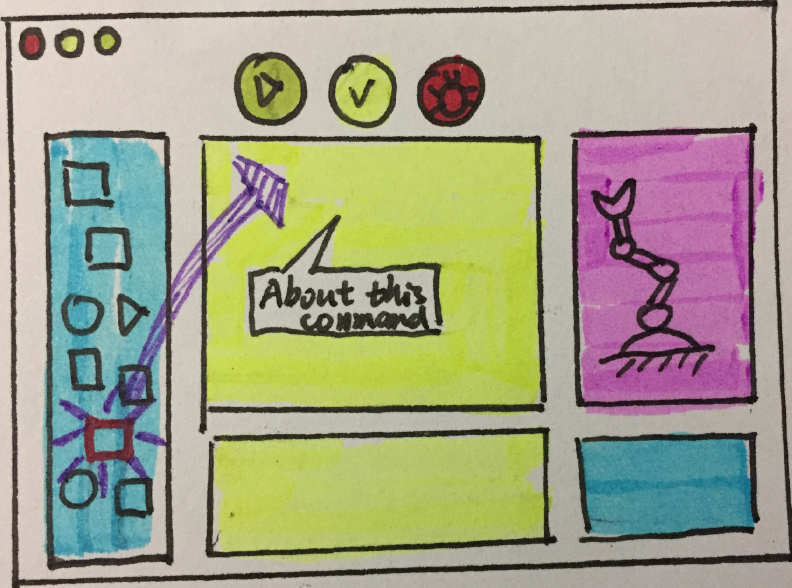 About this
command